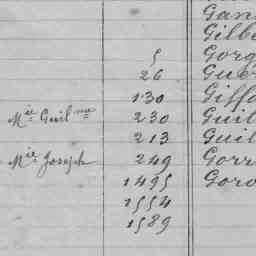 Gan
Gilb
5 Gorg
26 Guer
130 Giffo
Mie Guilme 230 Guil
213 Guil
Mie Joseph 249 Gorr
1495 Goro
1554
1589